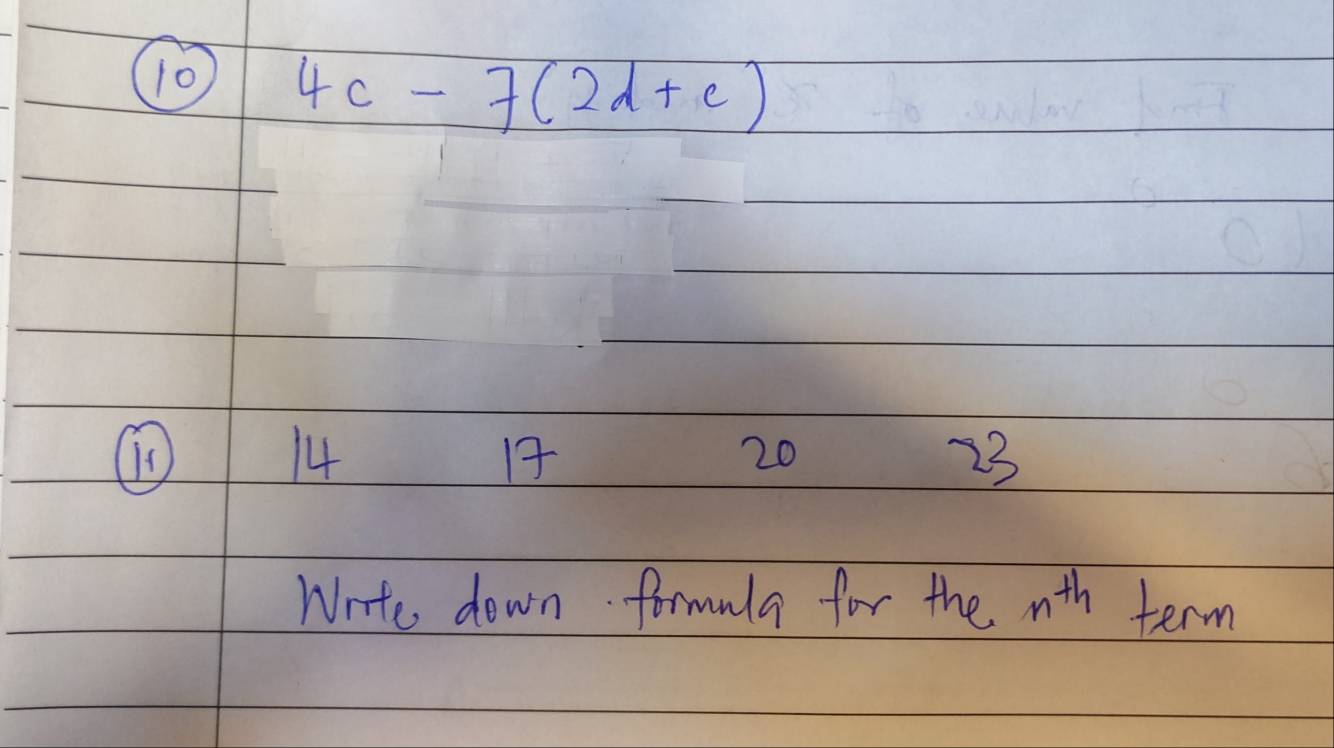 10 4c - 7(2d+e)
11 14 17 20 23
Write down formula for the nth term